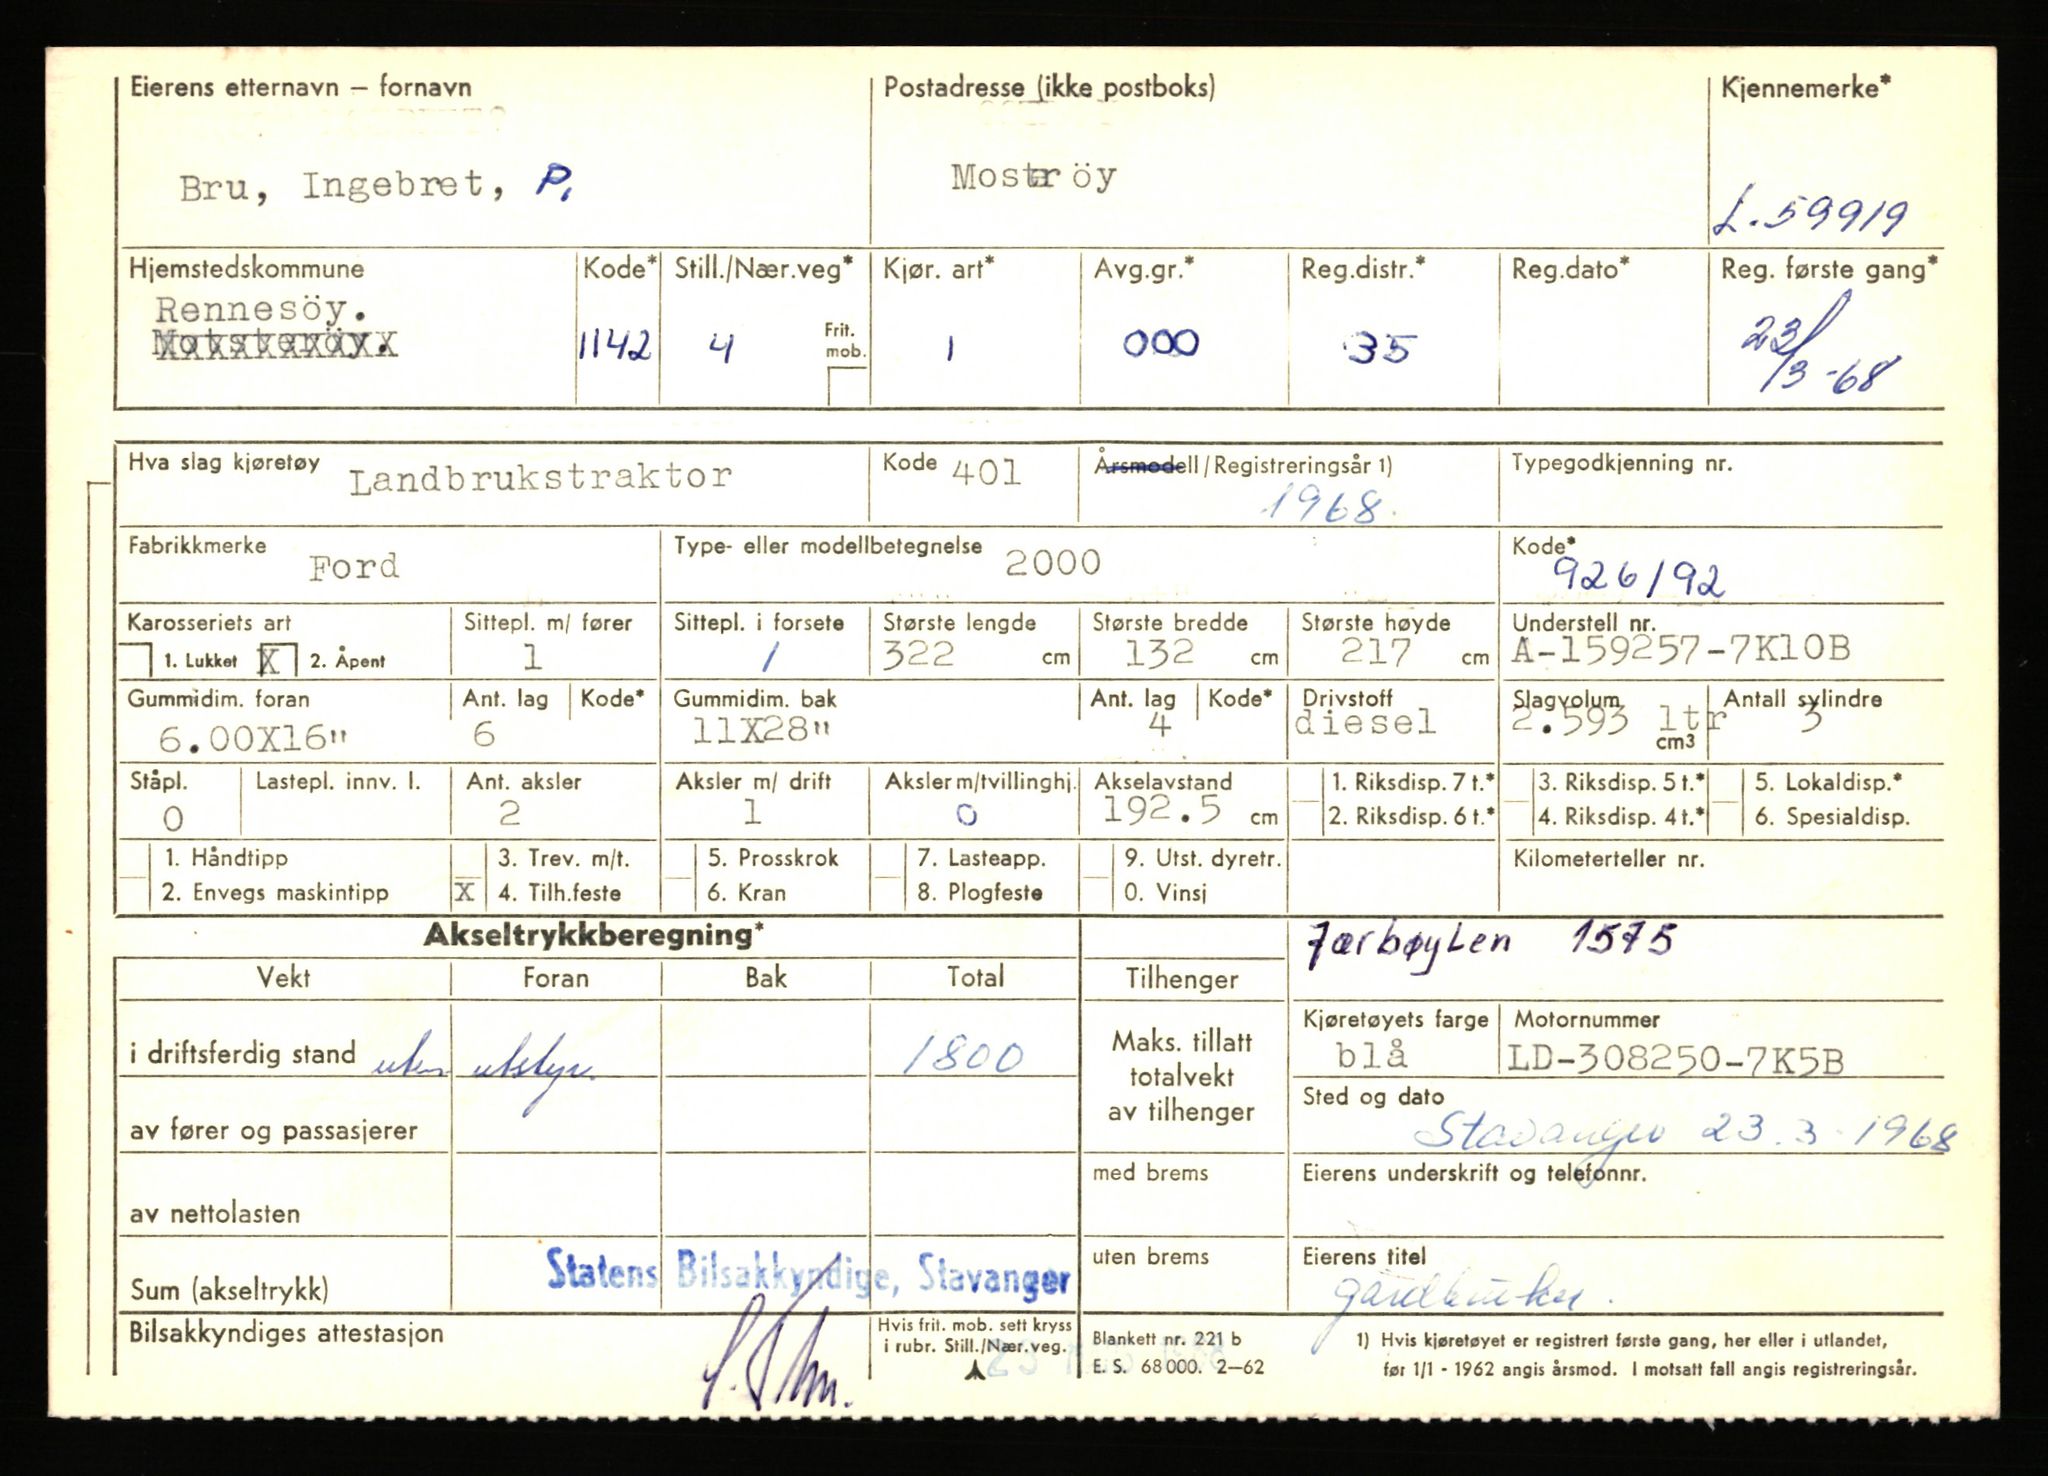 Eierens etternavn – fornavn Postadresse (ikke postboks) Kjennemerke*
Bru, Ingebret, P. Mosteröy L. 59919
Hjemstedskommune Kode* Still./Nær.veg* Kjør. art* Avg.gr.* Reg.distr.* Reg.dato* Reg. første gang*
Rennesöy.
Motsteröy. 1142 4 Frit. mob. 1 000 35 23/3-68
Hva slag kjøretøy Landbrukstraktor Kode 401 Årsmodell/Registreringsår 1) 1968. Typegodkjenning nr.
Fabrikkmerke Ford Type- eller modellbetegnelse 2000 Kode* 926/92
Karosseriets art Sittepl. m/ fører Sittepl. i forsete Største lengde Største bredde Største høyde Understell nr.
1. Lukket X 2. Åpent 1 1 322 cm 132 cm 217 cm A-159257-7K10B
Gummidim. foran Ant. lag Kode* Gummidim. bak Ant. lag Kode* Drivstoff Slagvolum Antall sylindre
6.00X16" 6 11X28" 4 diesel 2.593 ltr cm3 3
Ståpl. Lastepl. innv. l. Ant. aksler Aksler m/ drift Aksler m/tvillinghj. Akselavstand 1. Riksdisp. 7 t.* 3. Riksdisp. 5 t.* 5. Lokaldisp.*
0 2 1 0 192.5 cm 2. Riksdisp. 6 t.* 4. Riksdisp. 4 t.* 6. Spesialdisp.
1. Håndtipp 3. Trev. m/t. 5. Prosskrok 7. Lasteapp. 9. Utst. dyretr. Kilometerteller nr.
2. Envegs maskintipp X 4. Tilh.feste 6. Kran 8. Plogfeste 0. Vinsj
Akseltrykkberegning* Jærbøylen 1575
Vekt Foran Bak Total Tilhenger
Kjøretøyets farge Motornummer
i driftsferdig stand uten utstyr. 1800 Maks. tillatt totalvekt av tilhenger blå LD-308250-7K5B
Sted og dato
av fører og passasjerer Stavanger 23.3-1968
med brems Eierens underskrift og telefonnr.
av nettolasten
uten brems Eierens titel
Statens Bilsakkyndige, Stavanger
Sum (akseltrykk) gårdbruker.
Bilsakkyndiges attestasjon Hvis frit. mob. sett kryss i rubr. Still./Nær.veg. Blankett nr. 221 b 1) Hvis kjøretøyet er registrert første gang, her eller i utlandet,
E. S. 68 000. 2–62 før 1/1 - 1962 angis årsmod. I motsatt fall angis registreringsår.